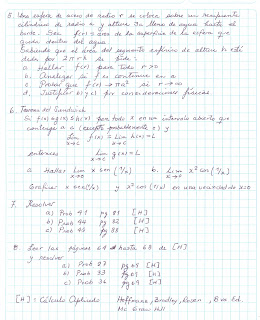 5. Una esfera de acero de radio r se coloca sobre un recipiente
cilíndrico de radio a y altura 3a lleno de agua hasta el
borde. Sea f(r) = área de la superficie de la esfera que
queda dentro del agua
Sabiendo que el área del segmento esférico de altura h está
dada por 2πrh se pide:
a. Hallar f(r) para todo r>0
b. Analizar si f es continua en a
c. Probar que f(r) → πa² si r → ∞
d. Justificar b) y c) por consideraciones físicas
6. Teorema del Sandwich
Si f(x) ≤ g(x) ≤ h(x) para todo x en un intervalo abierto que
contenga a c (excepto probablemente c) y
lim f(x) = lim h(x) = L
x→c x→c
entonces lim g(x) = L
x→c
a. Hallar lim x sen(1/x) b. lim x² cos(1/x)
Graficar x sen(1/x) y x² cos(1/x) en una vecindad de x=0
7. Resolver
a) Prob 47 pg 83 [H]
b) Prob 44 pg 82 [H]
c) Prob 49 pg 88 [H]
8. Leer las páginas 64 hasta 68 de [H]
y resolver
a) Prob 27 pg 69 [H]
b) Prob 33 pg 69 [H]
c) Prob 36 pg 69 [H]
[H] = Cálculo Aplicado Hoffmann, Bradley, Rosen, 8va Ed.
Mc Graw Hill